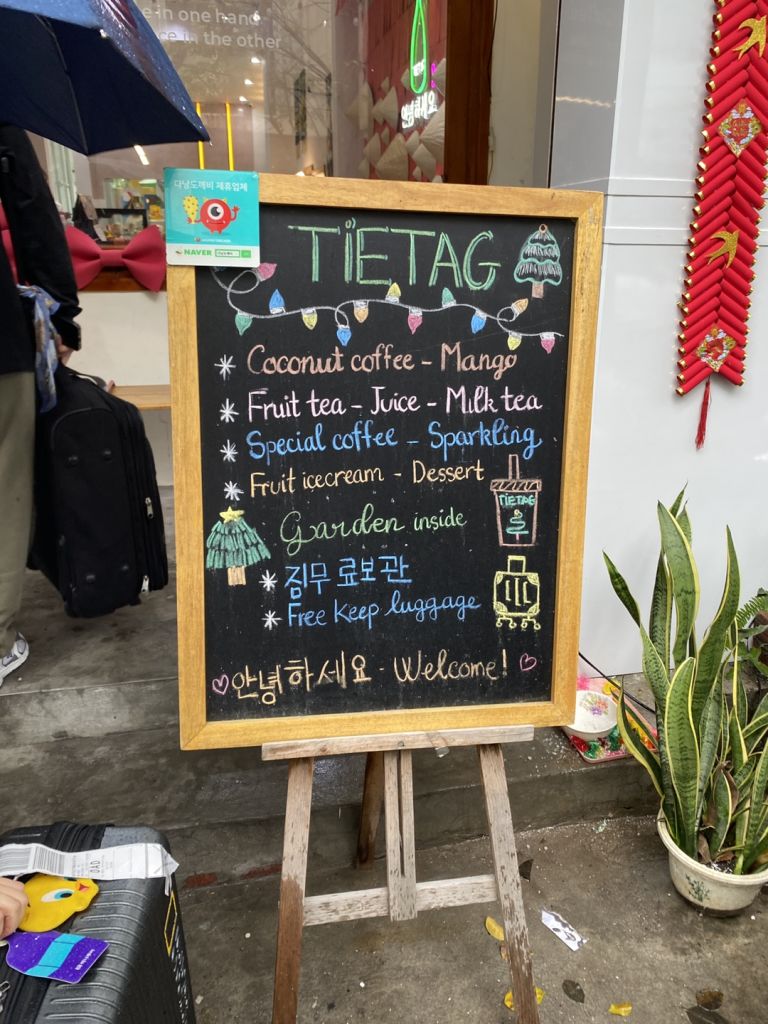 e in one hand
ce in the other
안녕하세요
다낭도깨비 제휴업체
NAVER
TIETAG
Coconut coffee - Mango
Fruit tea - Juice - Milk tea
Special coffee - Sparkling
Fruit icecream - Dessert
TIETAG
Garden inside
짐무 료보관
Free keep luggage
안녕하세요 - Welcome!
DAD